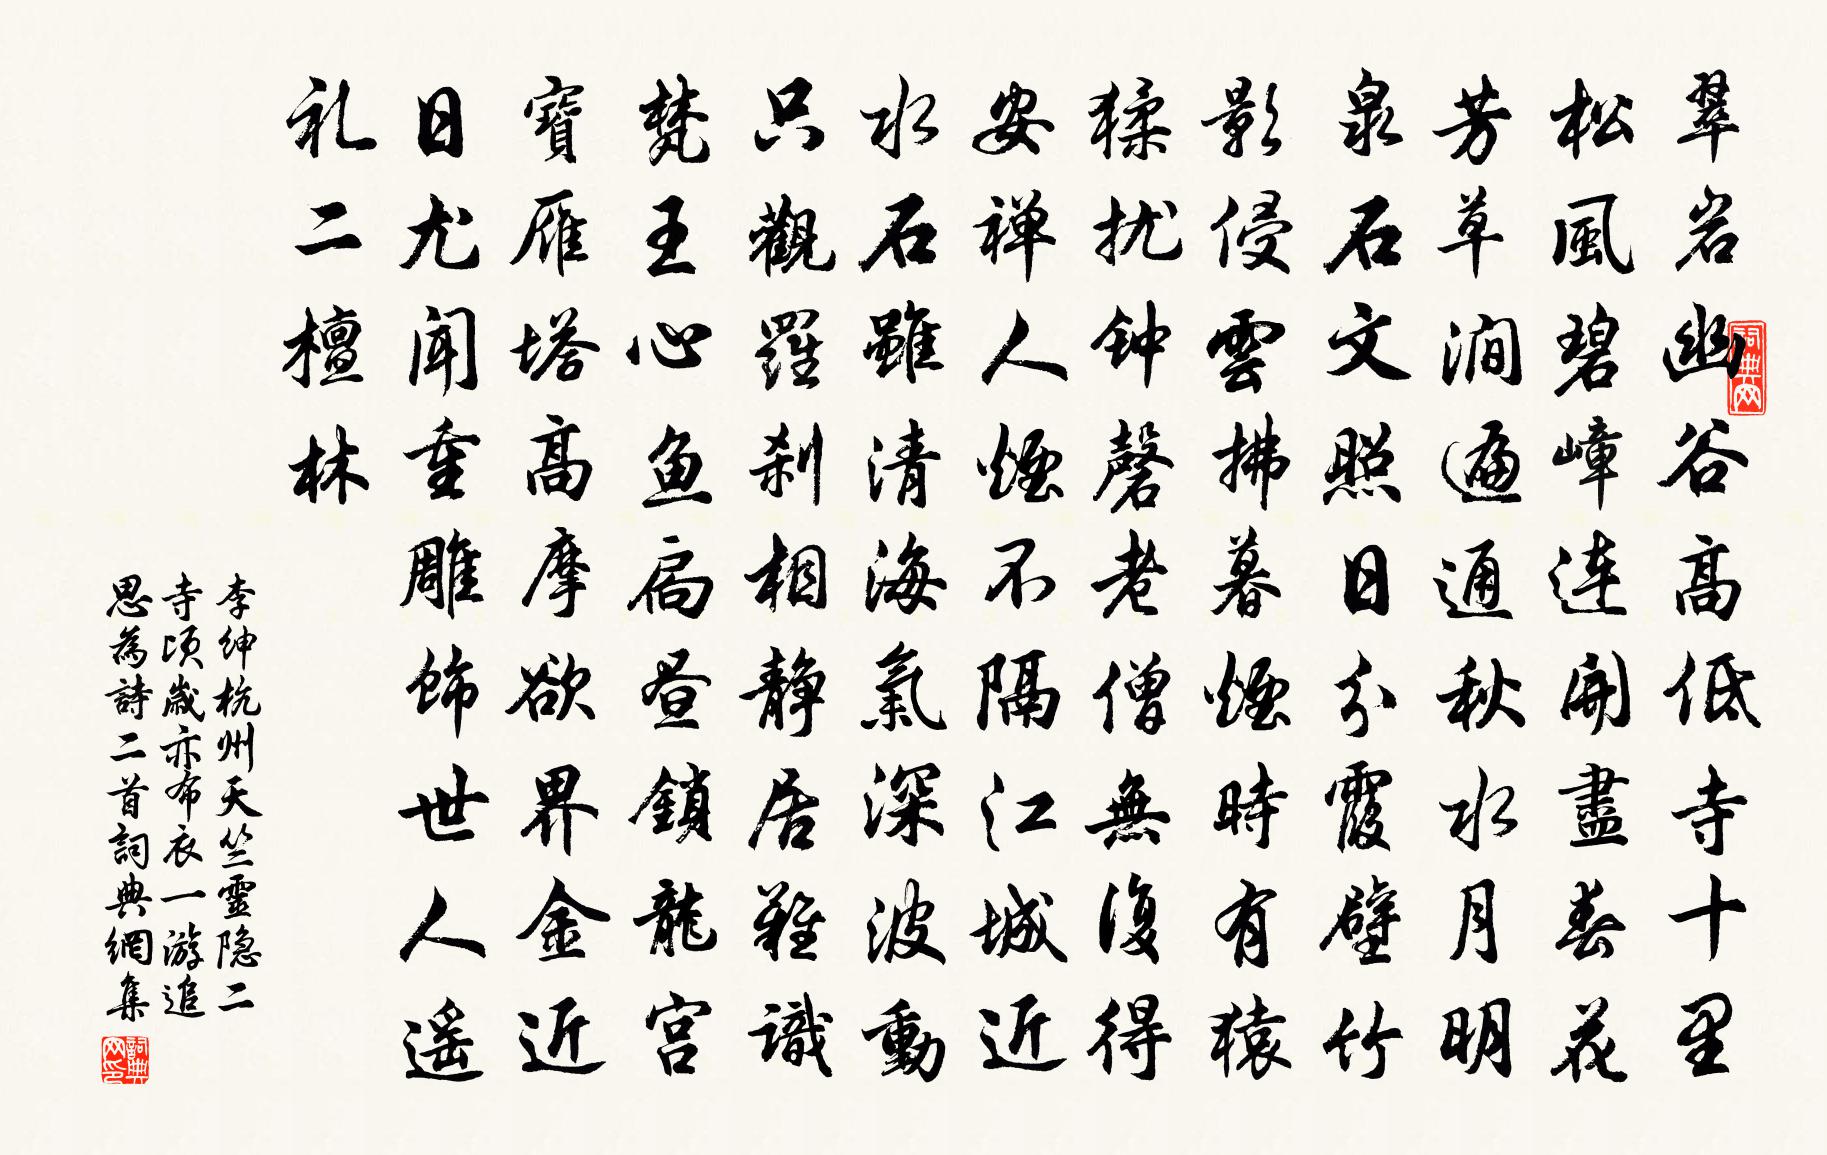 翠岩幽谷高低寺十里
松風碧嶂連開盡春花
芳草澗遍通秋水月明
泉石文照日分霞壁竹
影侵雲拂暮煙時有猿
猱扰钟磬老僧無復得
安禅人煙不隔江城近
水石雖清海氣深波動
只觀羅刹相静居難識
梵王心魚扃昼鎖龍宮
寶雁塔高摩欲界金近
日尤聞重雕飾世人遥
礼二檀林
李绅杭州天竺靈隐二
寺顷歲亦布衣一游追
思為詩二首詞典網集
词典网
詞典网印